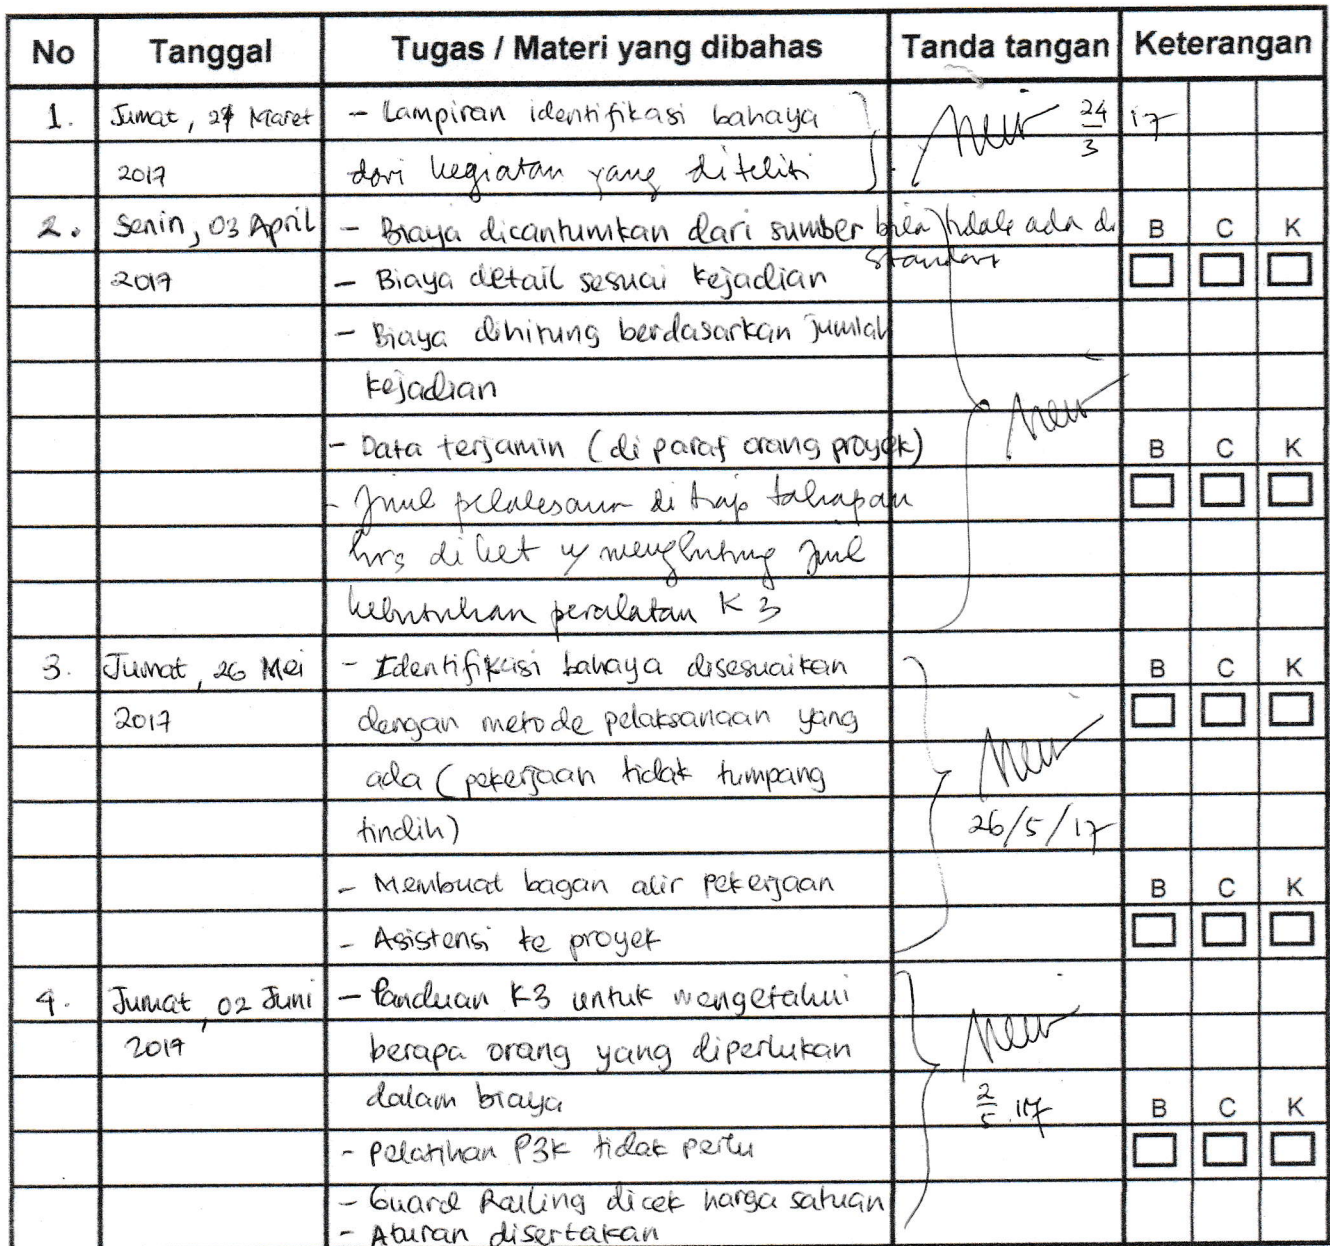 No Tanggal Tugas / Materi yang dibahas Tanda tangan Keterangan
1. Jumat, 24 Maret - Lampiran identifikasi bahaya 24 17
2017 dari kegiatan yang diteliti 3
2. Senin, 03 April - Biaya dicantumkan dari sumber bila tidak ada di B C K
2017 - Biaya detail sesuai kejadian standart
- Biaya dihitung berdasarkan jumlah
kejadian
- Data terjamin (di paraf orang proyek) B C K
- Jml pelaksana di tiap tahapan
hrs di ket u/ menghitung Jml
kebutuhan peralatan K3
3. Jumat, 26 Mei - Identifikasi bahaya disesuaikan B C K
2017 dengan metode pelaksanaan yang
ada (pekerjaan tidak tumpang
tindih) 26/5/17
- Membuat bagan alir pekerjaan B C K
- Asistensi ke proyek
4. Jumat, 02 Juni - Panduan K3 untuk mengetahui
2017 berapa orang yang diperlukan
dalam biaya 2/5 17 B C K
- Pelatihan P3K tidak perlu
- Guard Railing dicek harga satuan
- Aturan disertakan